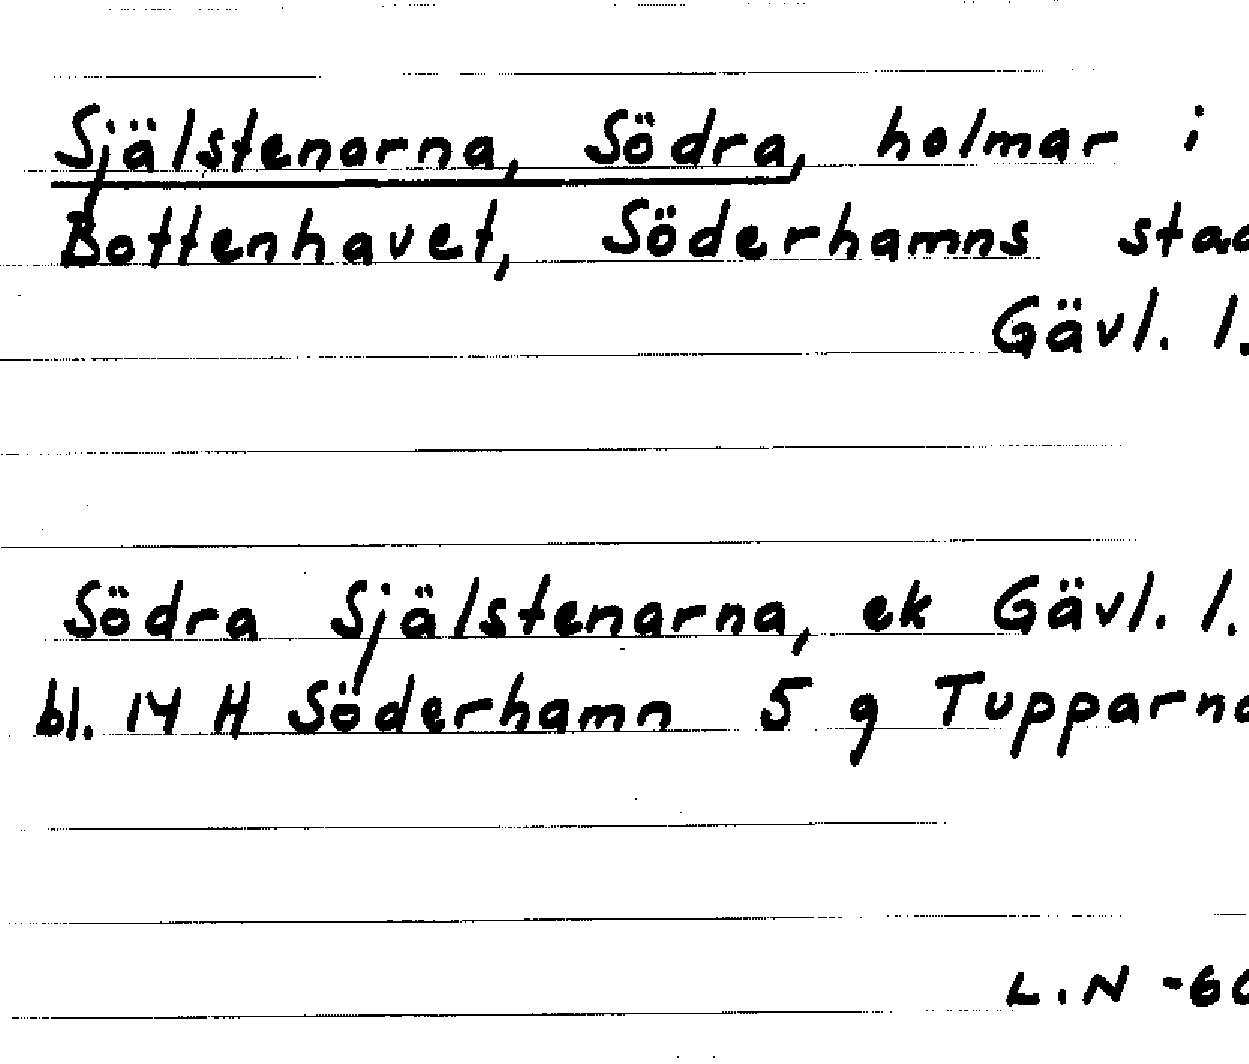 Själstenarna, Södra, holmar i
Bottenhavet, Söderhamns
Gävl. l.
Södra Själstenarna, ek Gävl. l.
bl. 14 H Söderhamn 5 g Tupparna
L.N